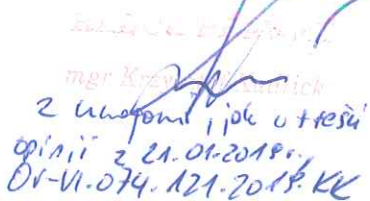 mgr Krzy
z uwagami, jak w treści
opinii z 21.01.2019r.
Or-VI.074.121.2019.KK